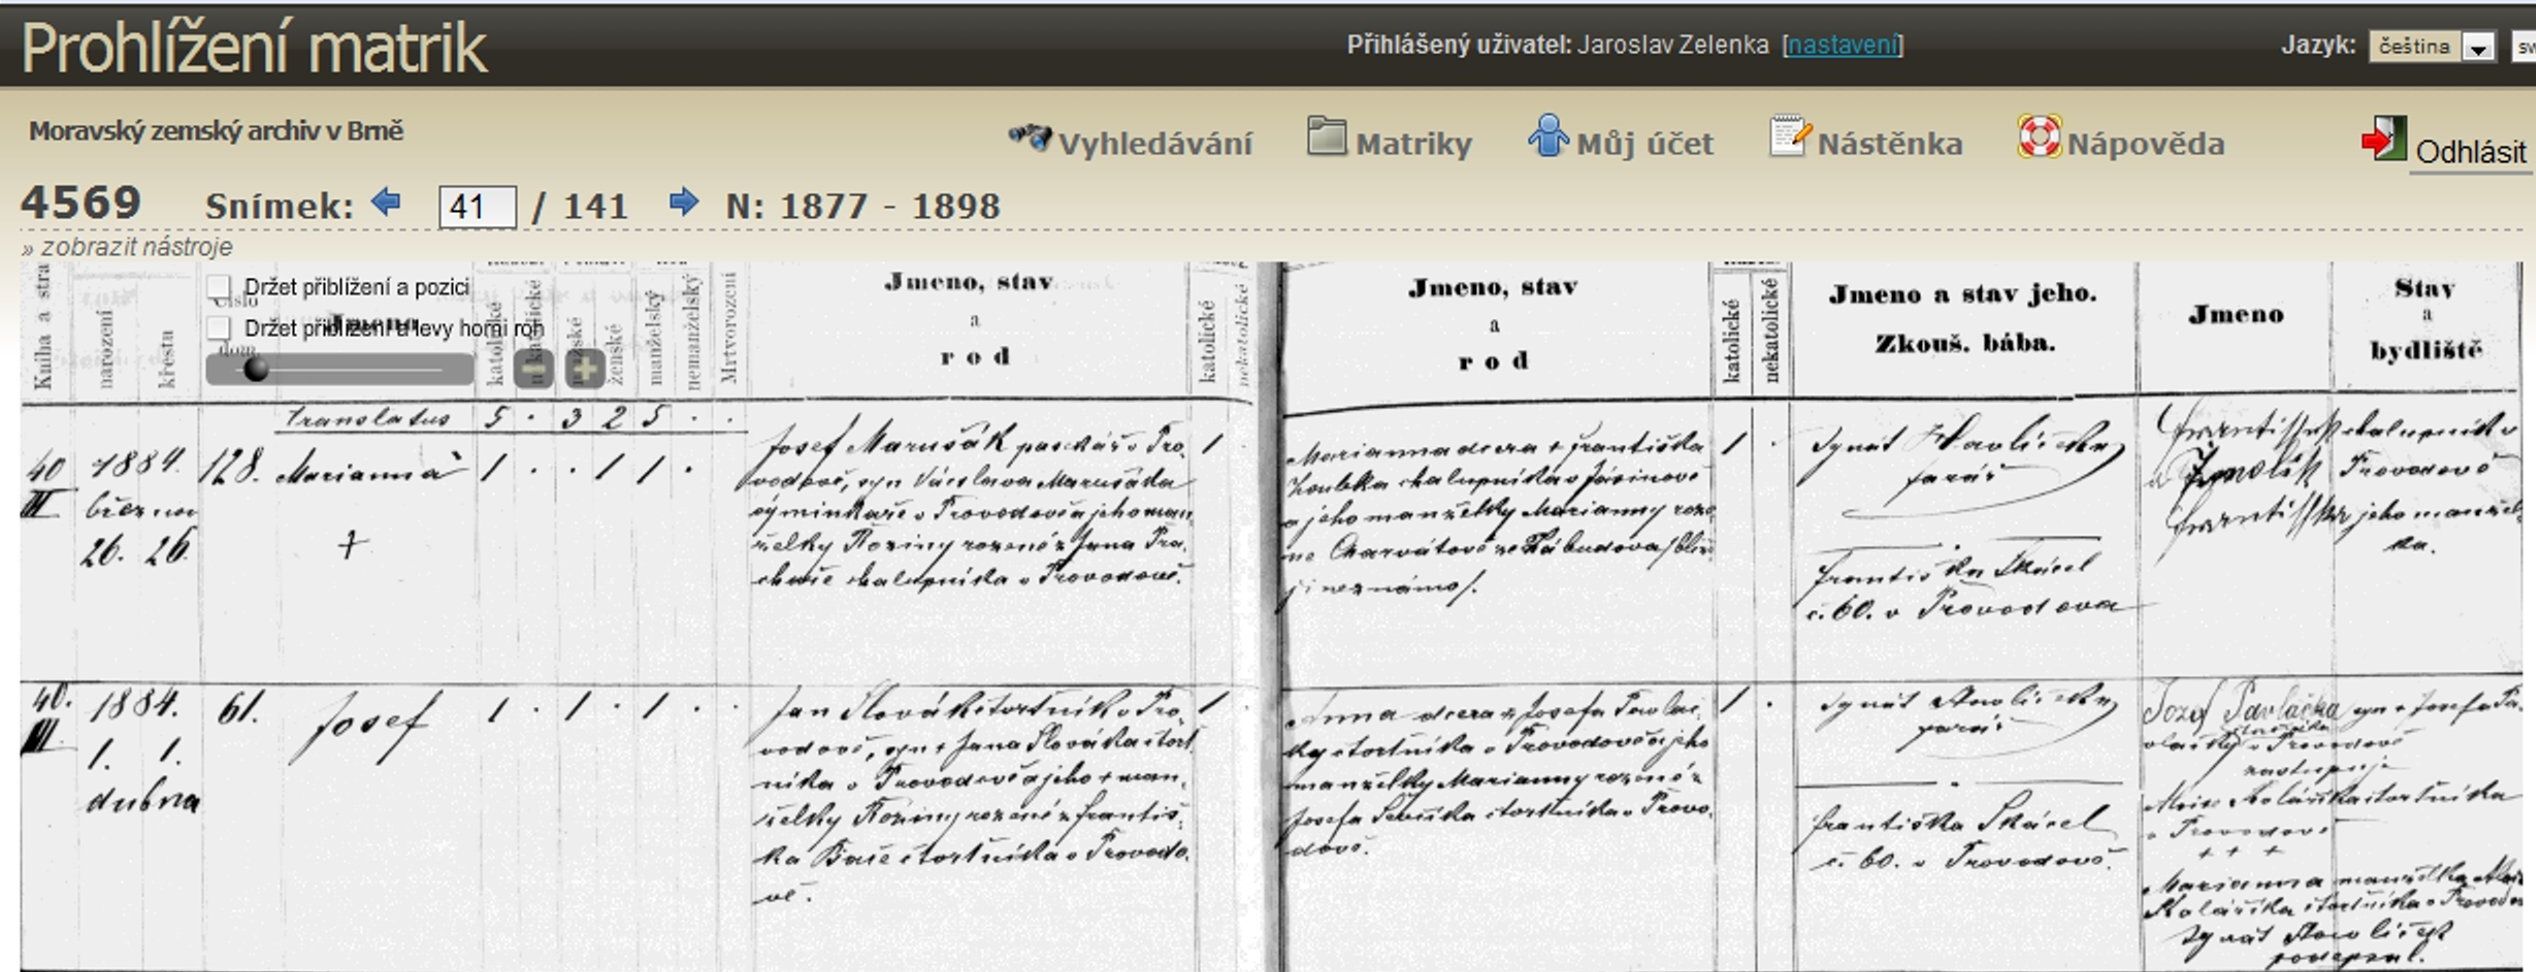 Prohlížení matrik
Přihlášený uživatel: Jaroslav Zelenka [nastavení]
Jazyk: čeština
Moravský zemský archiv v Brně
Vyhledávání
Matriky
Můj účet
Nástěnka
Nápověda
Odhlásit
4569 Snímek: 41 / 141 N: 1877 - 1898
» zobrazit nástroje
Držet přiblížení a pozici
Držet přiblížení a levý horní roh
Kniha a stra
narození
křesta
Číslo
dom.
Jmeno
katolické
nekatolické
mužské
ženské
manželský
nemanželský
Mrtvorozeni
Jmeno, stav
a
rod
katolické
nekatolické
Jmeno, stav
a
rod
katolické
nekatolické
Jmeno a stav jeho.
Zkouš. bába.
Jmeno
Stav
a
bydliště
Translatus 5 · 3 2 5 · ·
40
III
1884.
březnov
26. 26.
128. Marianna 1 · · 1 1 ·
+
Josef Marušák v Pro-
vodově, syn Václava Marušáka
výminkaře v Provodově a jeho man-
želky Roziny rozené z Jana
chalupníka v Provodově.
1
Marianna dcera + Františka
chalupníka v
a jeho manželky Marianny roze-
ne Charvátově
neznámo/.
1 ·
Ignát Havlíček
farář
Františka Skácel
č. 60. v Provodova
Frantisstek chalupník v
a Provodově
Frantisska jeho manžel-
ka.
40.
III.
1884.
1. 1.
dubna
61. Josef 1 · 1 · 1 · ·
Jan Slovák čtvrtník v Pro-
vodově, syn + Jana Slováka čtvrt-
níka v Provodově a jeho + man-
želky Roziny rozené z Františ-
ka čtvrtníka v Provodo-
vě.
1 ·
Anna dcera z Josefa Pavlač-
ky čtvrtníka v Provodově a jeho
manželky Marianny rozené z
Josefa Ševčíka čtvrtníka v Provo-
dově.
1 ·
Ignát Havlíček
farář
Františka Skácel
č. 60. v Provodově.
Jozef Pavlačka syn + Josefa Pa-
vlačky v Provodově
zastupuje
Alois Kolářík čtvrtníka
v Provodově
+ + +
Marianna manželka
Kolaříka čtvrtníka v Provodov
Ignát Havlíček
podepsal.